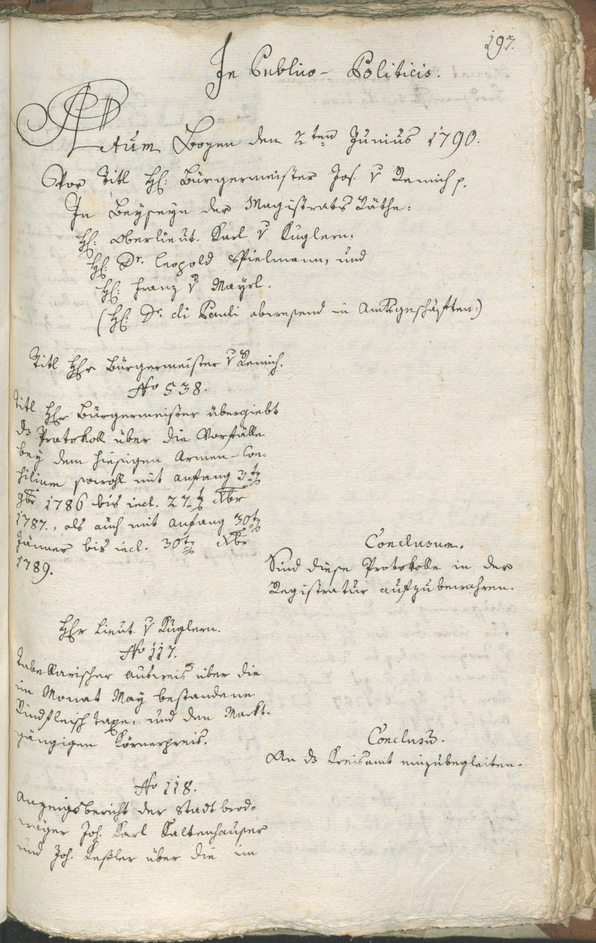 197.
In Publico-Politicis.
Actum Bozen den 2ten Junius 1790.
Vor Titl H: Bürgermeister Jos. v Remich p,
In Beyseyn der Magistrats Räthe:
H: Oberlieut. Karl v Kuglern,
H: Dr. Leopold Spielmann, und
H: Franz v Mayrl.
(H: Dr. di Pauli abwesend in Amtsgeschäften:)
Titl Hhr Bürgermeister v Remich.
No 538.
Titl Hhr Bürgermeister übergiebt
ds Protokoll über die Vorfälle
bey dem hiesigen Armen-Con-
silium sowohl mit anfang 3ty
9br 1786 bis incl. 27ty Xbr
1787., als auch mit Anfang 30ty
Jänner bis incl. 30ty Xbr
1789.
Conclusum.
Sind diese Protokolle in der
Registratur aufzubewahren.
Hhr Lieut. v Kuglern.
No 117.
Tabellarischer Ausweis über die
im Monat May bestandene
Rindfleisch Taxe, und den Markt-
gängigen Körnerpreis.
Conclusum.
An ds Kreisamt einzubegleiten.
No 118.
Anzeigsbericht der Stadtbrod-
wäger Joh. Karl Kaltenhauser
und Joh. Keßler über die im